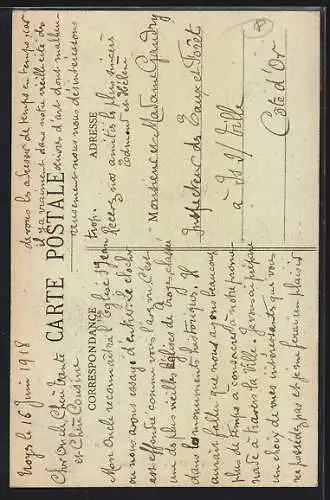 CARTE POSTALE
CORRESPONDANCE
ADRESSE
Troyes le 16 Juin 1918
Cher Oncle, Chère Tante
et Chère Cousine
Mon Oncle reconnaîtra l'Eglise St Jean
ou nous avons essayé d'entrer le clocher
est effondré comme vous voyez. C'est
une des plus vieilles églises de Troyes, classée
dans les monuments historiques. Il
aurait fallu que nous ayons beaucoup
plus de temps à consacrer à notre prome-
nade à travers la Ville. Je vous ai préparé
un choix de vues intéressantes que vous
ne possédez pas et je me ferai un plaisir
de vous les adresser de temps en temps, car
il y a vraiment dans notre vieille cité des
œuvres d'art dont malheu-
reusement nous nous désintéressons
trop.
Recevez nos amitiés les plus sincères
Edmond et Hélène
Monsieur et Madame Gaudry
Inspecteur des Eaux et Forêt
à Is S/ Tille
Côte d'Or